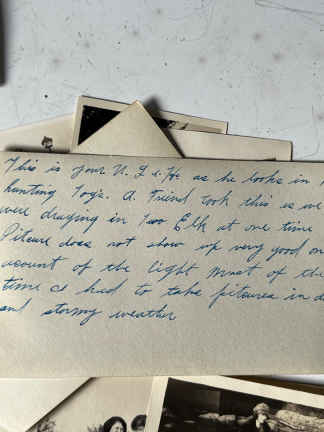 This is your U. L & He as he looks in
hunting Togs. A. Friend took this as we
were draging in two Elk at one time
Pitcure does not show up very good on
account of the light most of the
time as had to take pitcures in d
and stormy weather